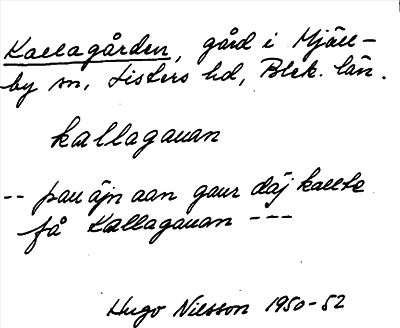 Kallagården, gård i Mjäll-
by sn, Listers hd, Blek. län.
kallagauan
-- pau äjn aan gaur däj kallte
få Kallagauan ---
Hugo Nilsson 1950-52